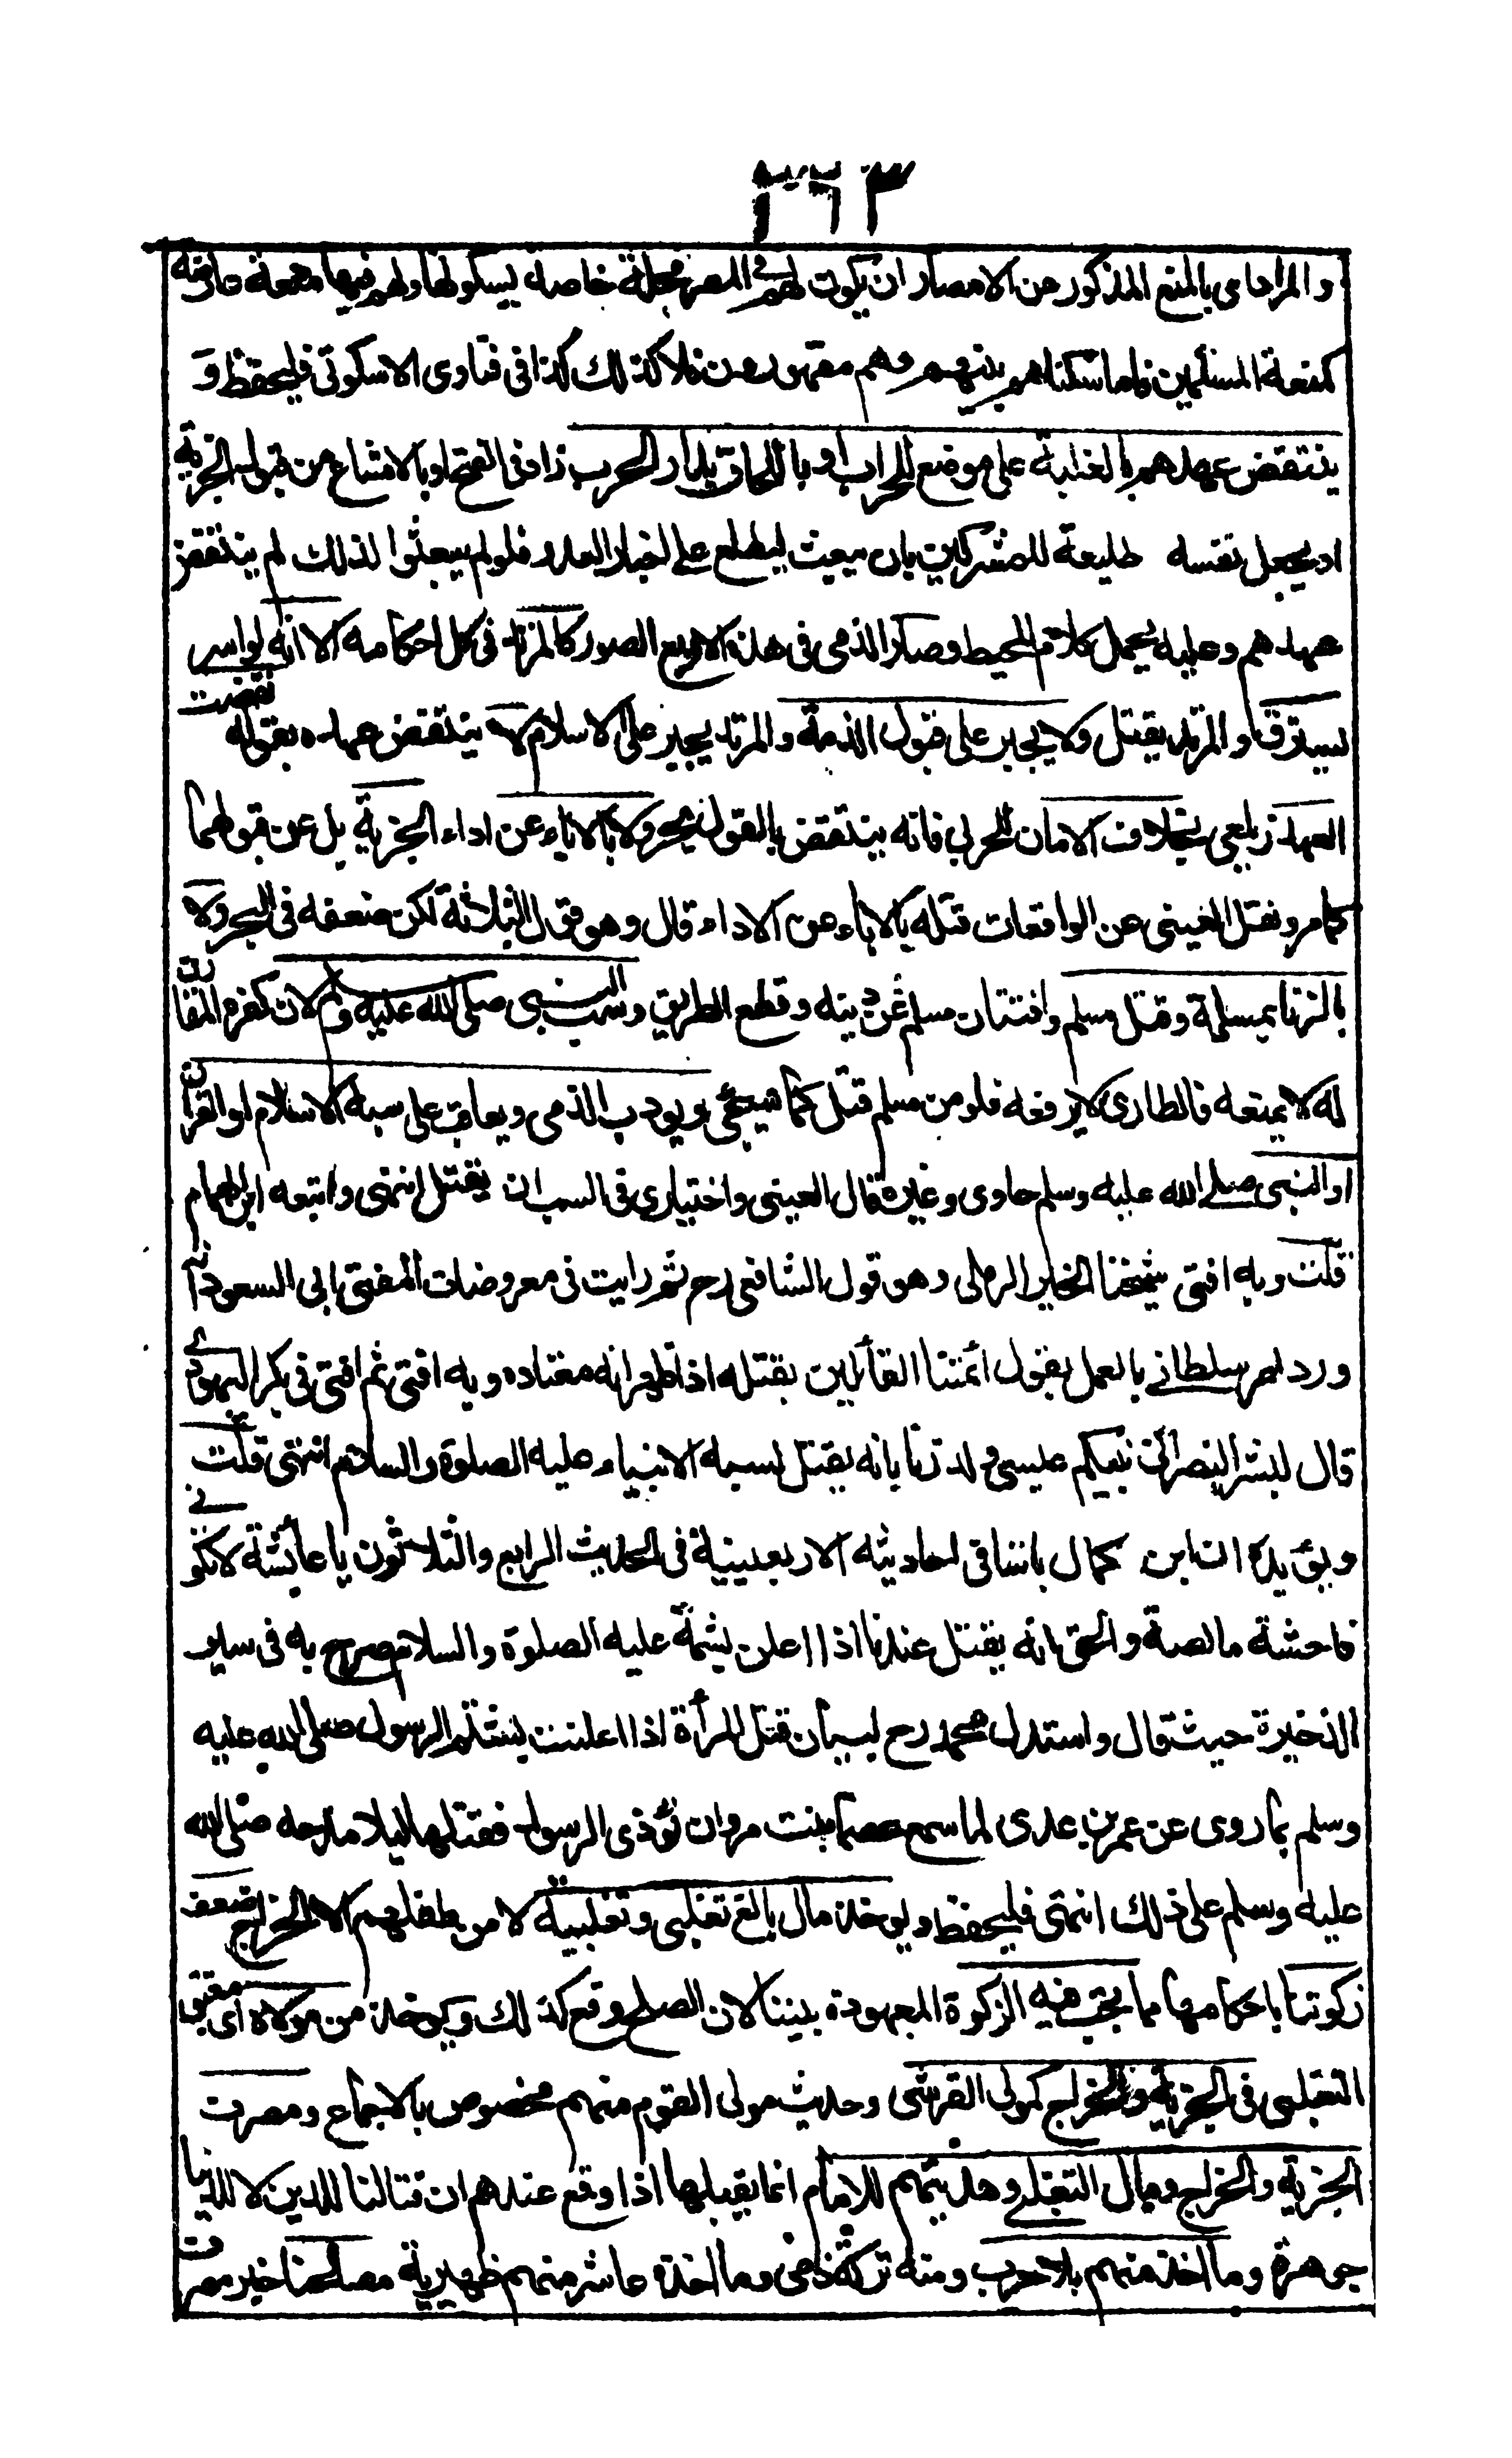 ٣٦٣
والمراد اى بالمنع المذكور عن الامصار ان يكون لهم فى المصر محلة خاصة يسكونها ولهم فيها منعة عارضة
كمنعة المسلمين فاما سكناهم بينهم وهم مقهورون فلا كذلك كذا فى فتاوى الاسكوبى فليحفظ و
ينتقض عهدهم بالغلبة على موضع للحراب او باللحاق بدار الحرب زاد فى الفتح او بالامتناع من قبول الجزية
او يجعل نفسه طليعة للمشركين بان يبعث ليطلع على اخبار العدو فلو لم يبعثوا لذلك لم ينتقض
عهدهم وعليه يحمل كلام المحيط وصار الذمى فى هذه الاربع الصور كالمرتد فى كل احكامه الا انه لو اسر
يسترق والمرتد يقتل ولا يجبر على قبول الذمة والمرتد يجبر على الاسلام لا ينتقض عهده بقوله نقضت
العهد زيلعى بخلاف الامان للحربى فانه ينتقض بالقول بحر ولا بالاباء عن اداء الجزية بل عن قبولها
كما مر ونقل العينى عن الواقعات قتله بالاباء عن الاداء قال وهو قول الثلاثة لكن ضعفه فى البحر ولا
بالزنا بمسلمة وقتل مسلم وافتتان مسلم عن دينه وقطع الطريق وسب النبى صلى الله عليه وسلم لان كفره المقارن
له لا يمنعه فالطارى لا يرفعه فلو من مسلم قتل كما سيجئ ويودب الذمى ويعاقب على سبه الاسلام او القران
او النبى صلى الله عليه وسلم حاوى وغيره قال العينى واختيارى فى السب ان يقتل انتهى واتبعه ابن الهمام
قلت وبه افتى شيخنا الخير الرملى وهو قول الشافعى رح ثم رايت فى معروضات المفتى ابى السعود انه
ورد امر سلطانى بالعمل بقول ائمتنا القائلين بقتله اذا ظهر انه معتاده وبه افتى ثم افتى فى بكر اليهودى
قال لبشر النصرانى نبيكم عيسى ولد زنا بانه يقتل لسبه الانبياء عليه الصلوة والسلام انتهى قلت
ويؤيده ان ابن كمال باشا فى احاديثه الاربعينية فى الحديث الرابع والثلاثون يا عائشة لا تكونى
فاحشة ما نصه والحق انه يقتل عندنا اذا اعلن بشتمه عليه الصلوة والسلام صرح به فى سير
الذخيرة حيث قال واستدل محمد رح لبيان قتل المرأة اذا اعلنت بشتم الرسول صلى الله عليه
وسلم بما روى عن عمر بن عدى لما سمع عصما بنت مروان تؤذى الرسول فقتلها ليلا مدحه صلى الله
عليه وسلم على ذلك انتهى فليحفظ ويوخذ مال بالغ تغلبى وتغلبية لا من طفلهم الا الخراج ضعف
زكوتنا باحكامها مما يجب فيه الزكوة المعهودة بيننا لان الصلح وقع كذلك ويوخذ من مولاه اى معتق
التغلبى فى الجزية والخراج كمولى القرشى وحديث مولى القوم منهم مخصوص بالاجماع ومصرف
الجزية والخراج ومال التغلبى وهديتهم للامام انما يقبلها اذا وقع عندهم ان قتالنا للدين لا للدنيا
جوهرة وما اخذ منهم بلا حرب ومنه تركة ذمى وما اخذه عاشر منهم ظهيرية مصالحنا خبر مصرف